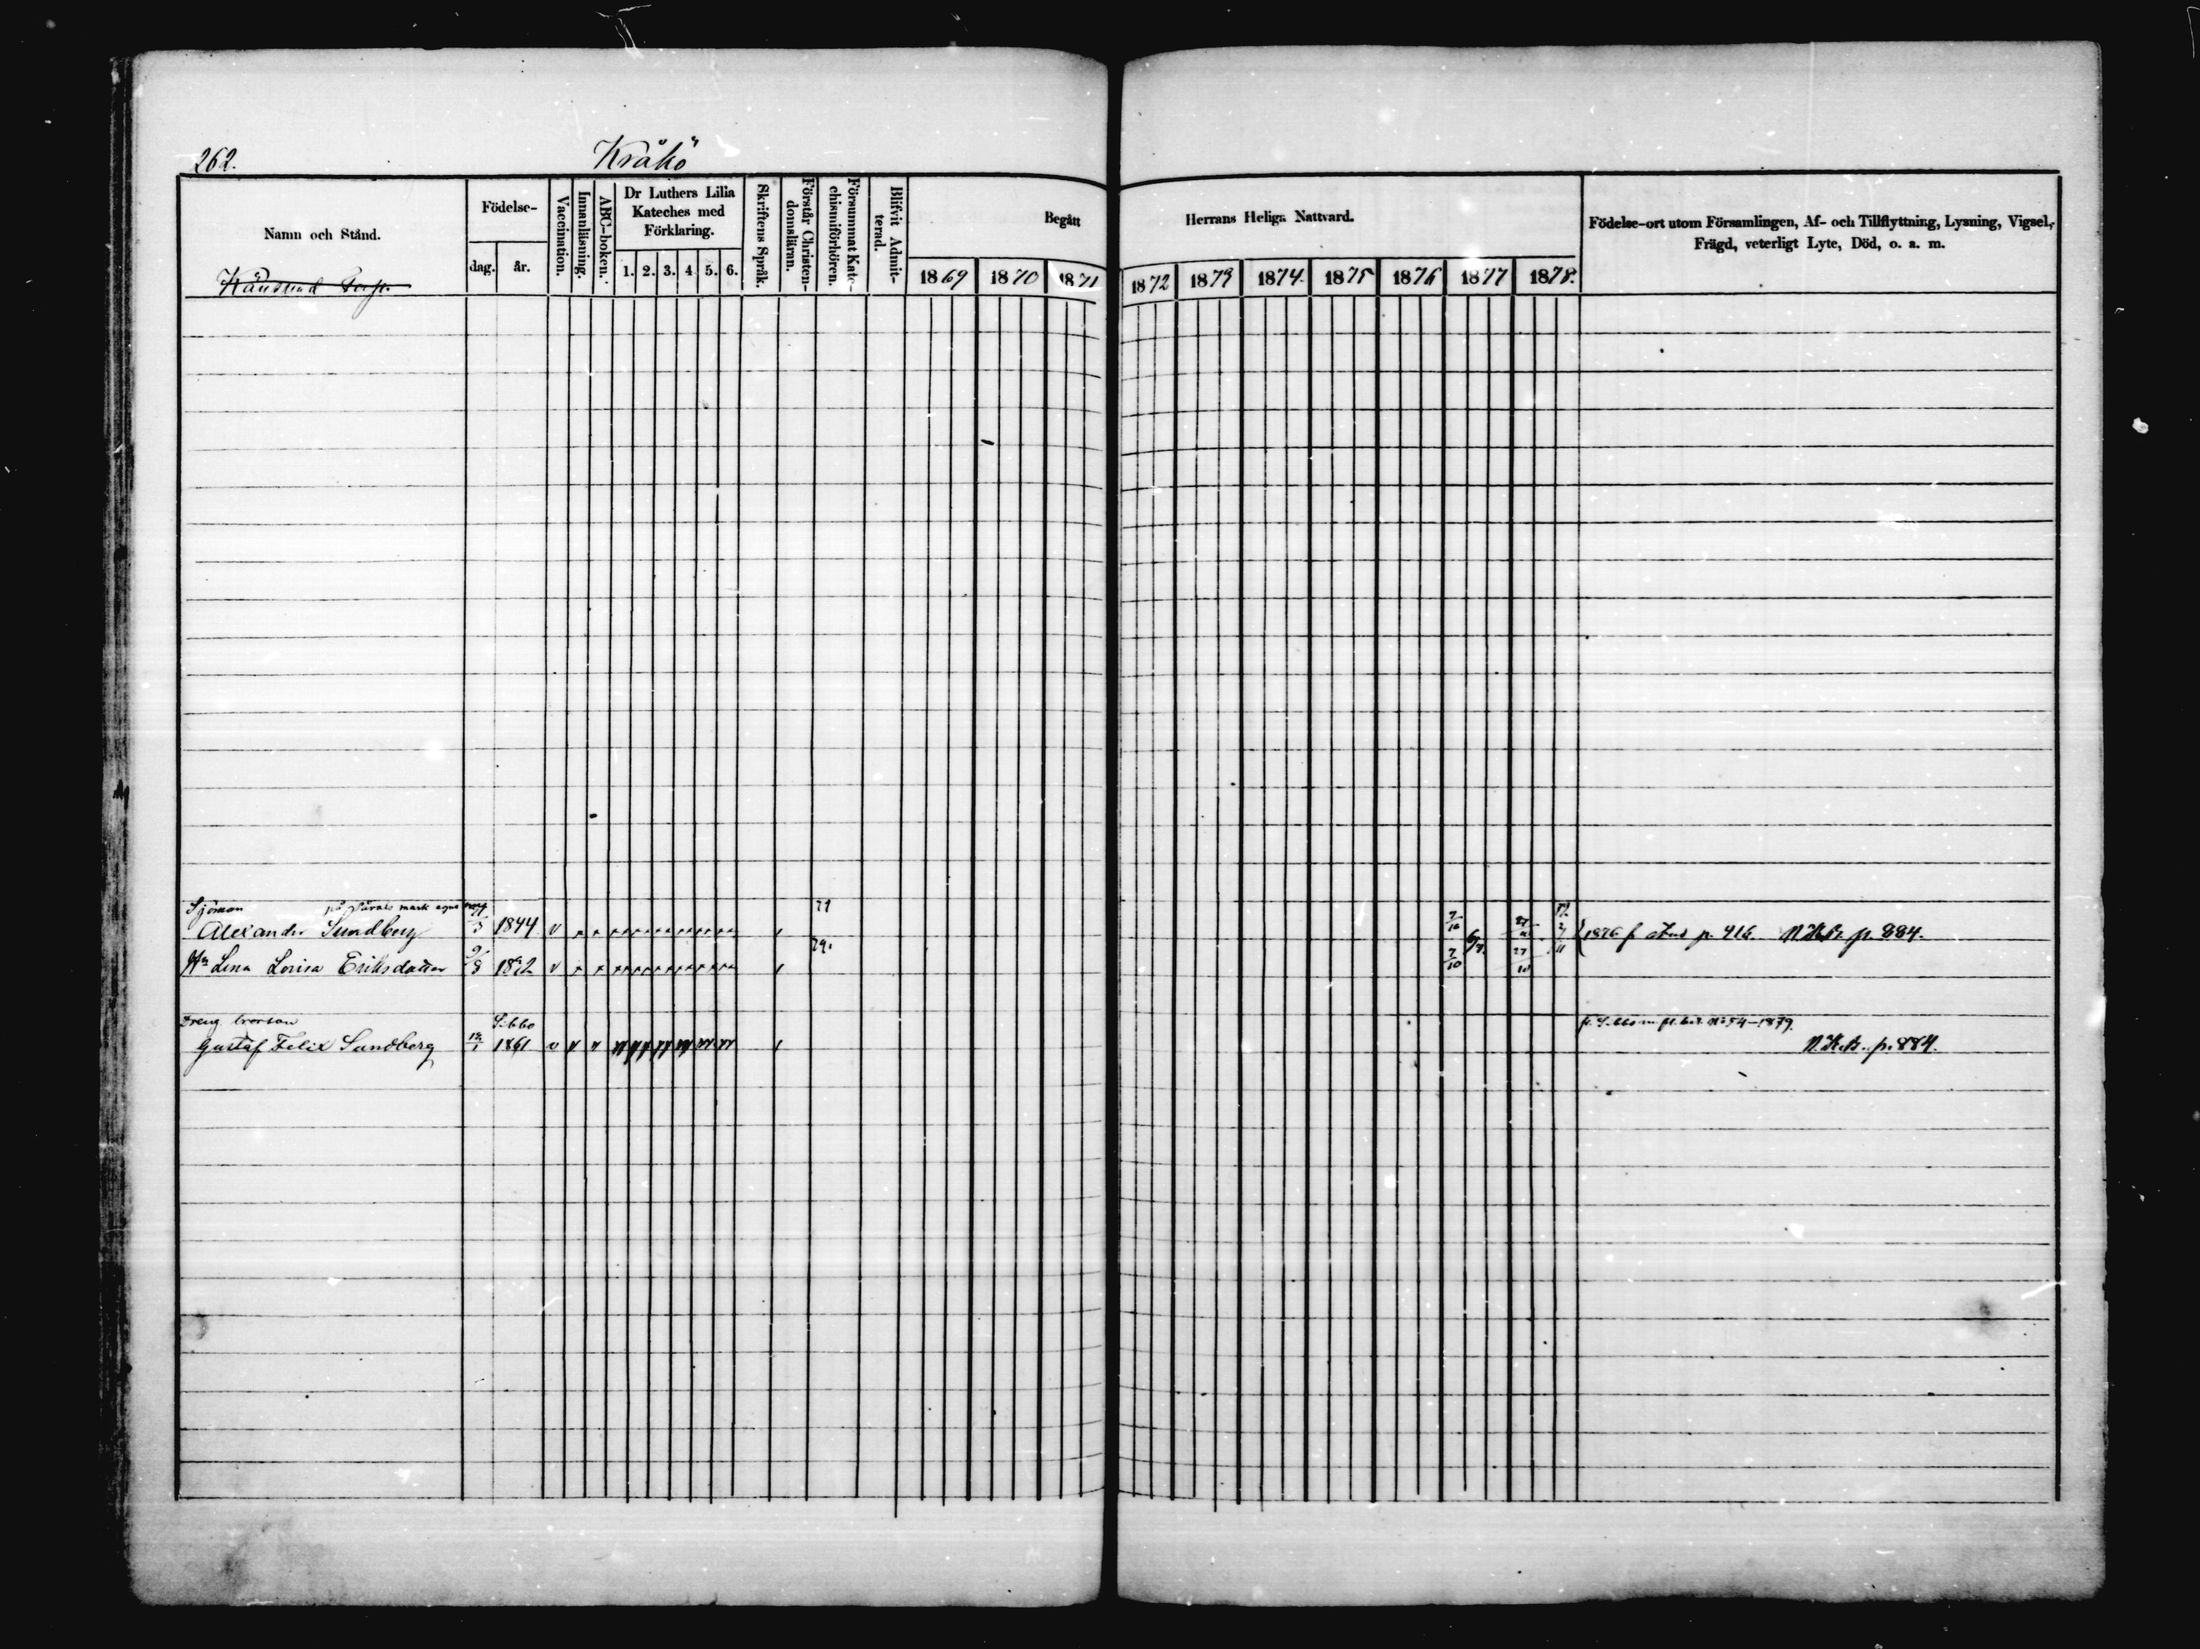 262.
Kråkö
Namn och Stånd.
Födelse-
dag.
år.
Vaccination.
Innanläsning.
ABC-boken.
Dr Luthers Lilla
Kateches med
Förklaring.
1. 2. 3. 4. 5. 6.
Skriftens Språk.
Förstår Christen-
domsläran.
Försummat Kate-
chismiförhören.
Blifvit Admit-
terad.
Begått
Herrans Heliga Nattvard.
1869 1870 1871
1872 1873 1874. 1875 1876 1877 1878.
Födelse-ort utom Församlingen, Af- och Tillflyttning, Lysning, Vigsel,
Frägd, veterligt Lyte, Död, o. a. m.
Sjöman på mark
Alexander Sundberg 1844 v 7/10 1876 f p. 416. N.K.B. p. 884.
Hu Lena Lovisa Eriksdotter 9/8 v 7/10 27/10
Dreng brorson Sibbo
Gustaf Felix Sundberg 1861 v fr. Sibbo m. fl. bet. No 54-1879.
N.K.B. p. 884.